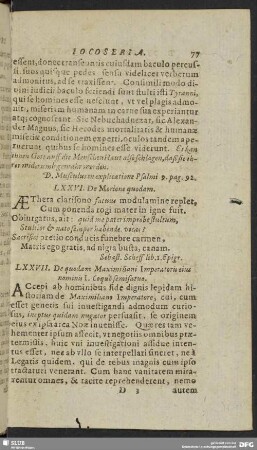 IOCOSERIA. 77
essent, donec transeuntis cuiusdam baculo percus-
si, suos quisque pedes sensu videlicet verberum
admonitus, adse traxissent. Consimili modo di-
vini iudicii baculo feriendi sunt stulti isti Tyranni,
qui se homines esse nesciunt, ut vel plagis admo-
niti, miseriam humanam in carne sua experiantur
atq; cognoscant. Sic Nebuchadnezar, sic Alexan-
der Magnus, sic Herodes mortalitatis & humanæ
miseriæ conditionem experti, oculos tandem ape-
ruerunt quibus se homines esse viderent.
D. Musculus in explicatione Psalmi 9. pag. 92.
LXXVI. De Morione quodam.
Æthera clarisono fatuus modulamine replet,
Cum ponenda rogi mater in igne fuit.
Obiurgatus, ait: quid me pater improbe stultum,
Stultior & nato semper habende vocas?
Sacrificos pretio conducis funebre carmen,
Matris ego gratis, ad nigra busta, canam.
Sebast. Scheff. lib. 2. Epigr.
LXXVII. De quodam Maximiliani Imperatoris eius
nominis I. Coquo semifatuo.
Accepi ab hominibus fide dignis lepidam hi-
storiam de Maximiliano Imperatore, cui, cum
esset generis sui investigandi admodum curio-
sus, ineptus quidam nugator persuasit, se originem
eius ex ipsa arca Noæ invenisse. Quæ res tam ve-
hementer ipsum assecit, ut negotiis omnibus præ-
termissis, huic uni investigationi assidue inten-
tus esset, nec ab ullo se interpellari sineret, ne à
Legatis quidem, qui de rebus magnis cum ipso
tractaturi venerant. Cum hanc vanitatem mira-
rentur omnes, & tacite reprehenderent, nemo
D 3 autem
SLUB